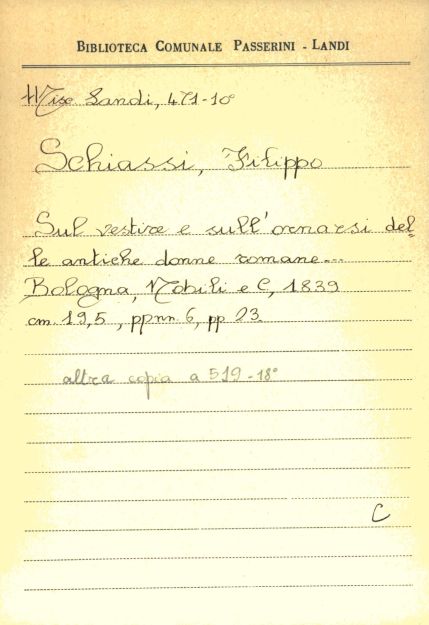 BIBLIOTECA COMUNALE PASSERINI - LANDI
Misc Landi, 471-10°
Schiassi, Filippo
Sul vestire e sull'ornarsi del=
le antiche donne romane...
Bologna, Nobili e C, 1839
cm. 19,5, ppnn. 6, pp 23.
altra copia a 519-18°
C